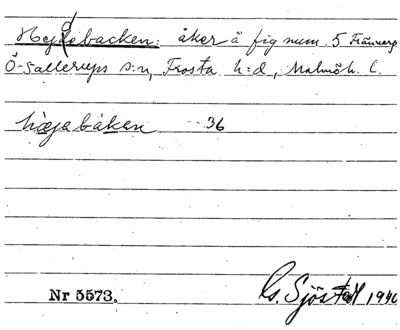 Hejdebacken: åker å fig num. 5 Trännarp
Ö-Sallerups s:n, Frosta h:d, Malmöh. l.
hæjabákan 36
Nr 5573.
Gs. Sjöstedt 1940